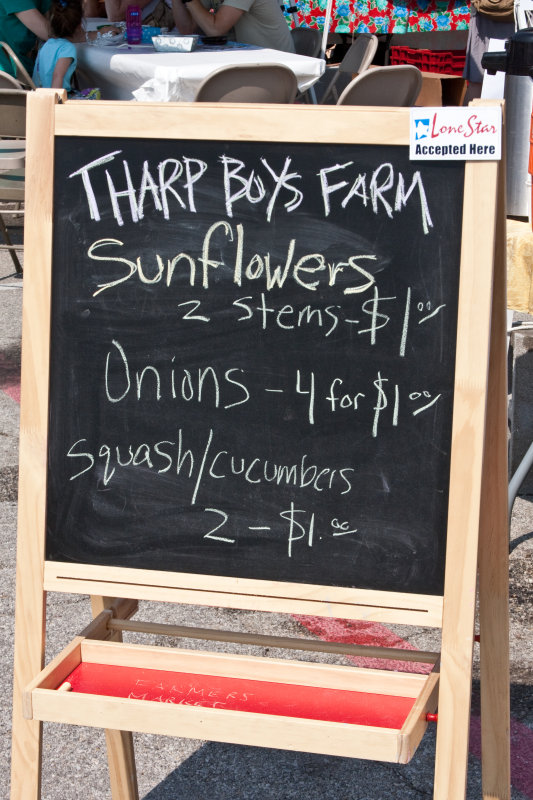 Lone Star
Accepted Here
THARP BOYS FARM
Sunflowers
2 Stems - $1.00
Onions - 4 for $1.00
squash/cucumbers
2 - $1.00
FARMERS
MARKET